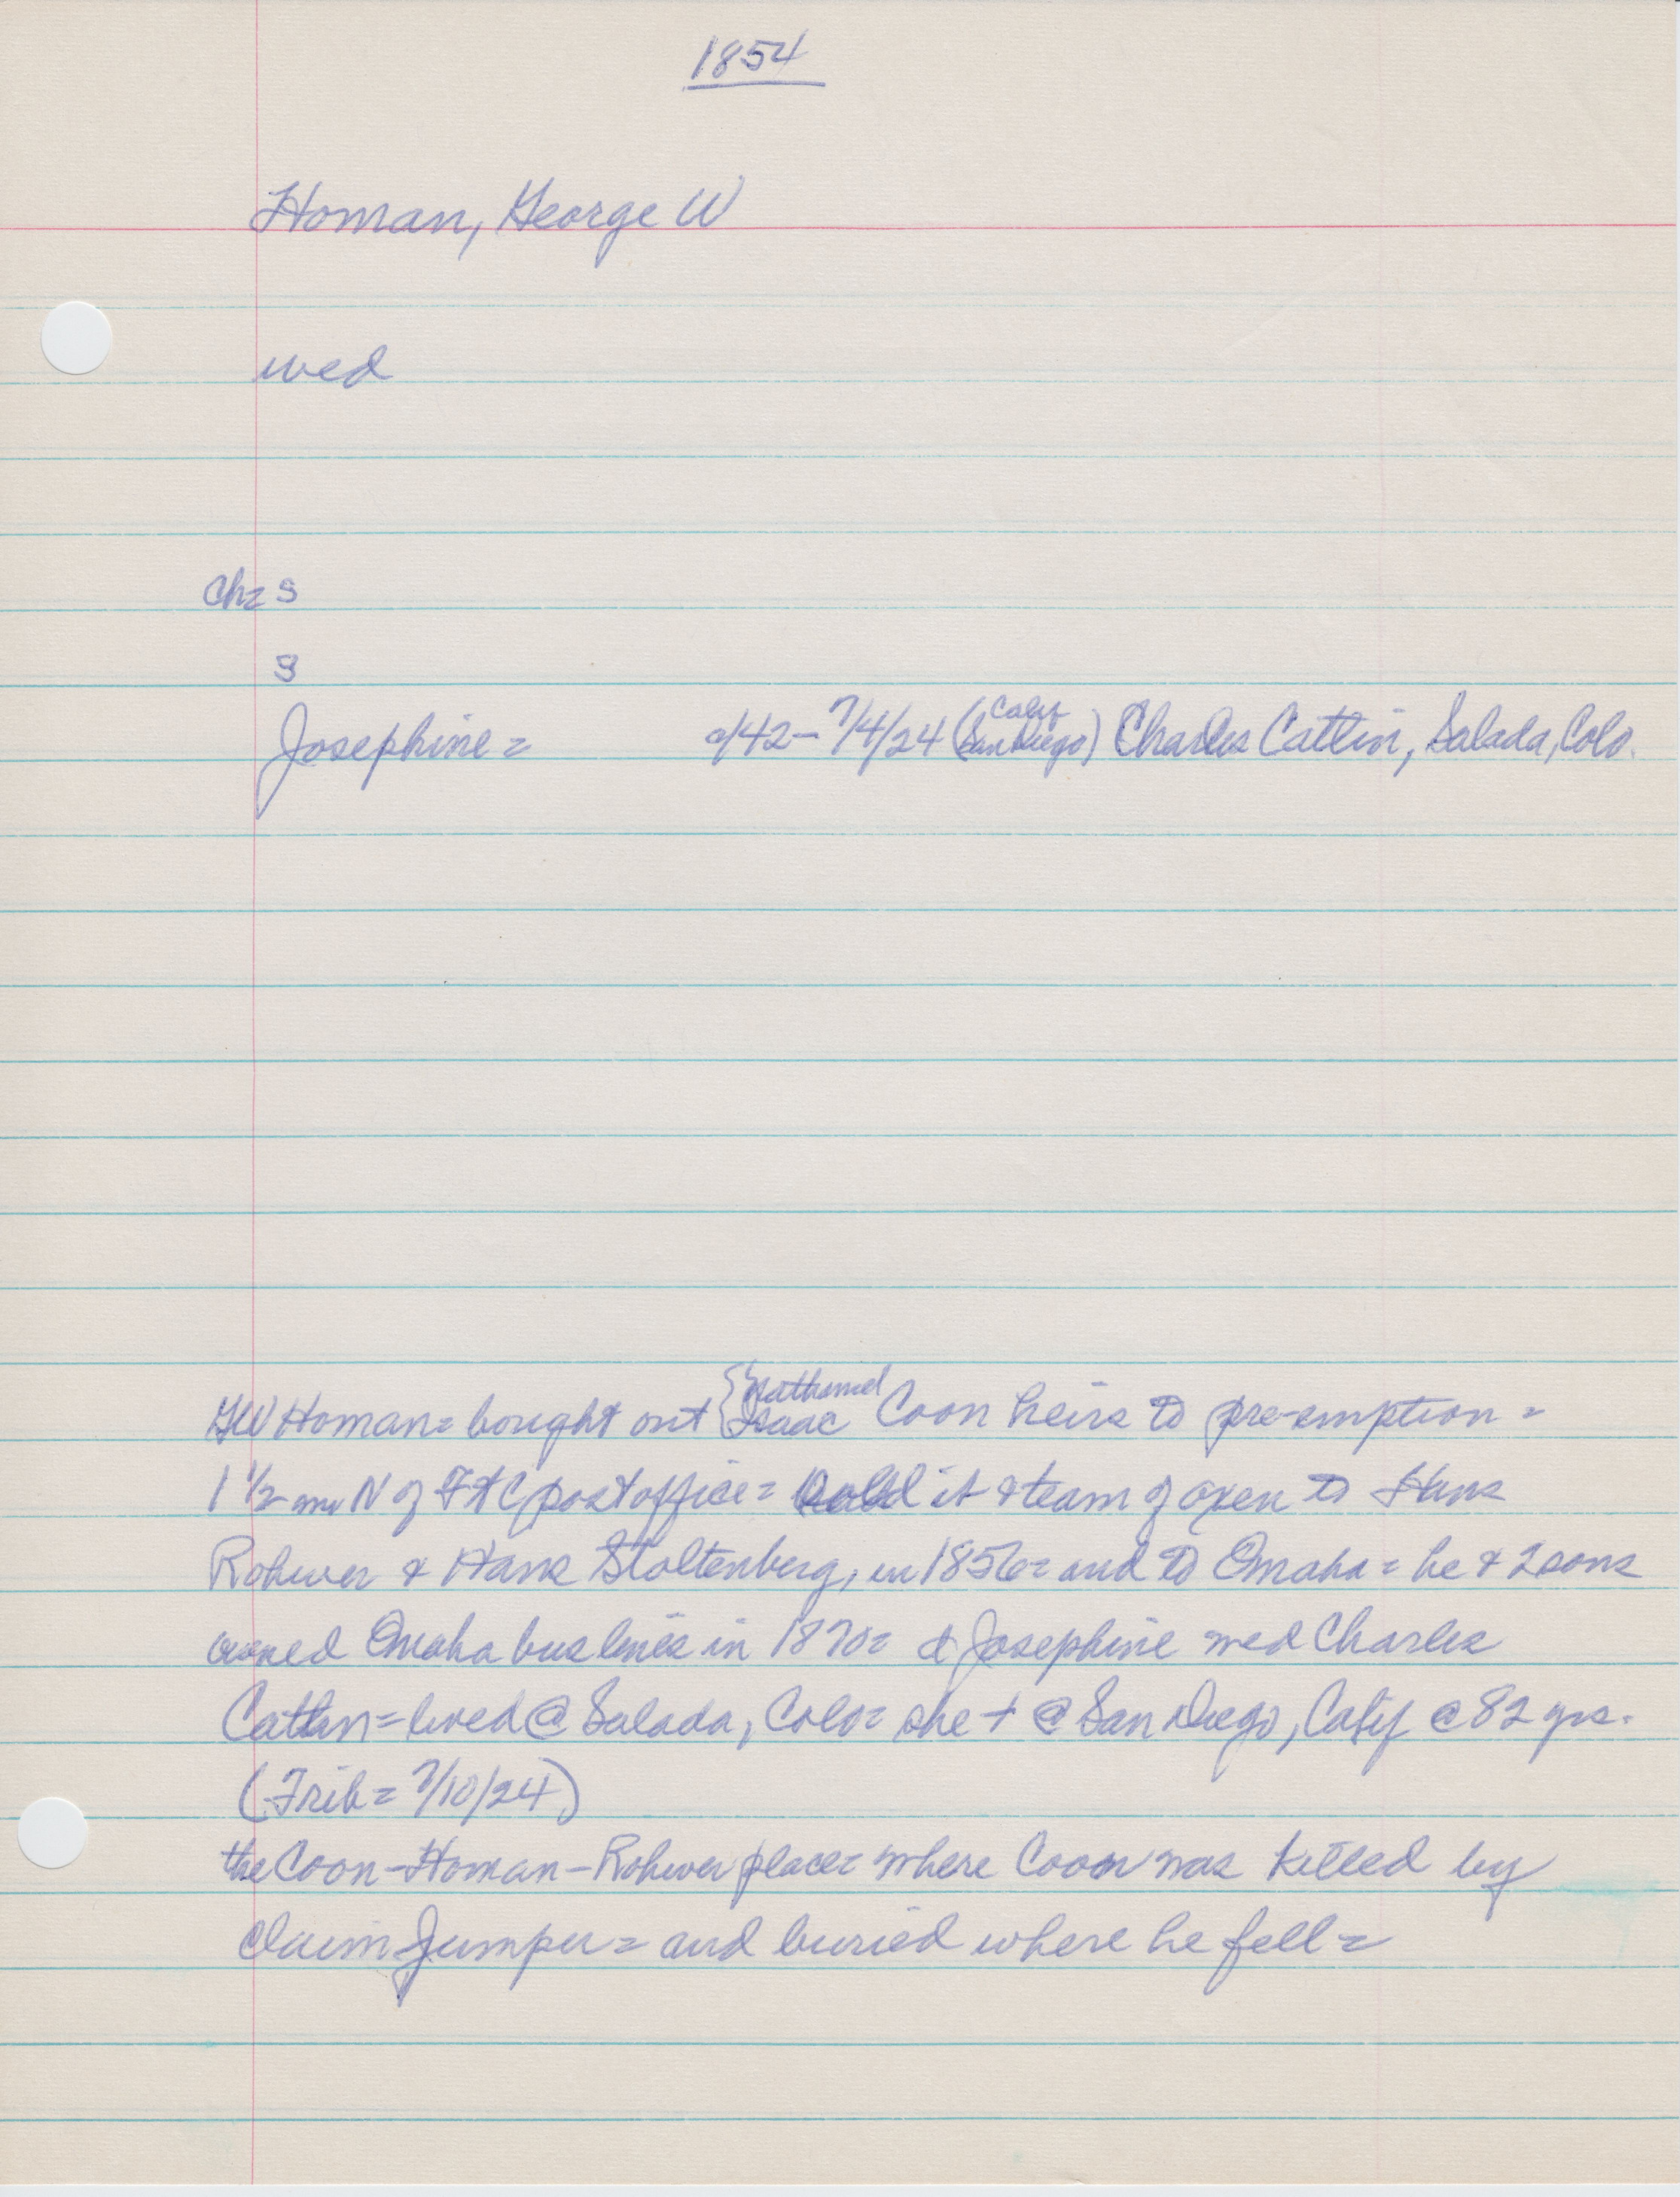 1854
Homan, George W
wed
Ch= S
S
Josephine = a/42 - 7/4/24 (San Diego Calif) Charles Catlin, Salada, Colo.
GW Homan = bought out {Nathaniel Isaac Coon heirs to pre-emption =
1 1/2 mi N of Ft C post office = sold it & team of oxen to Hans
Rohwer & Hans Stoltenberg, in 1856 = and to Omaha = he & 2 sons
owned Omaha bus lines in 1870 = d Josephine wed Charles
Catlin = lived @ Salada, Colo = she + @ San Diego, Calif @ 82 yrs.
(Trib = 7/10/24)
the Coon - Homan - Rohwer place = where Coon was killed by
claim jumper = and buried where he fell =